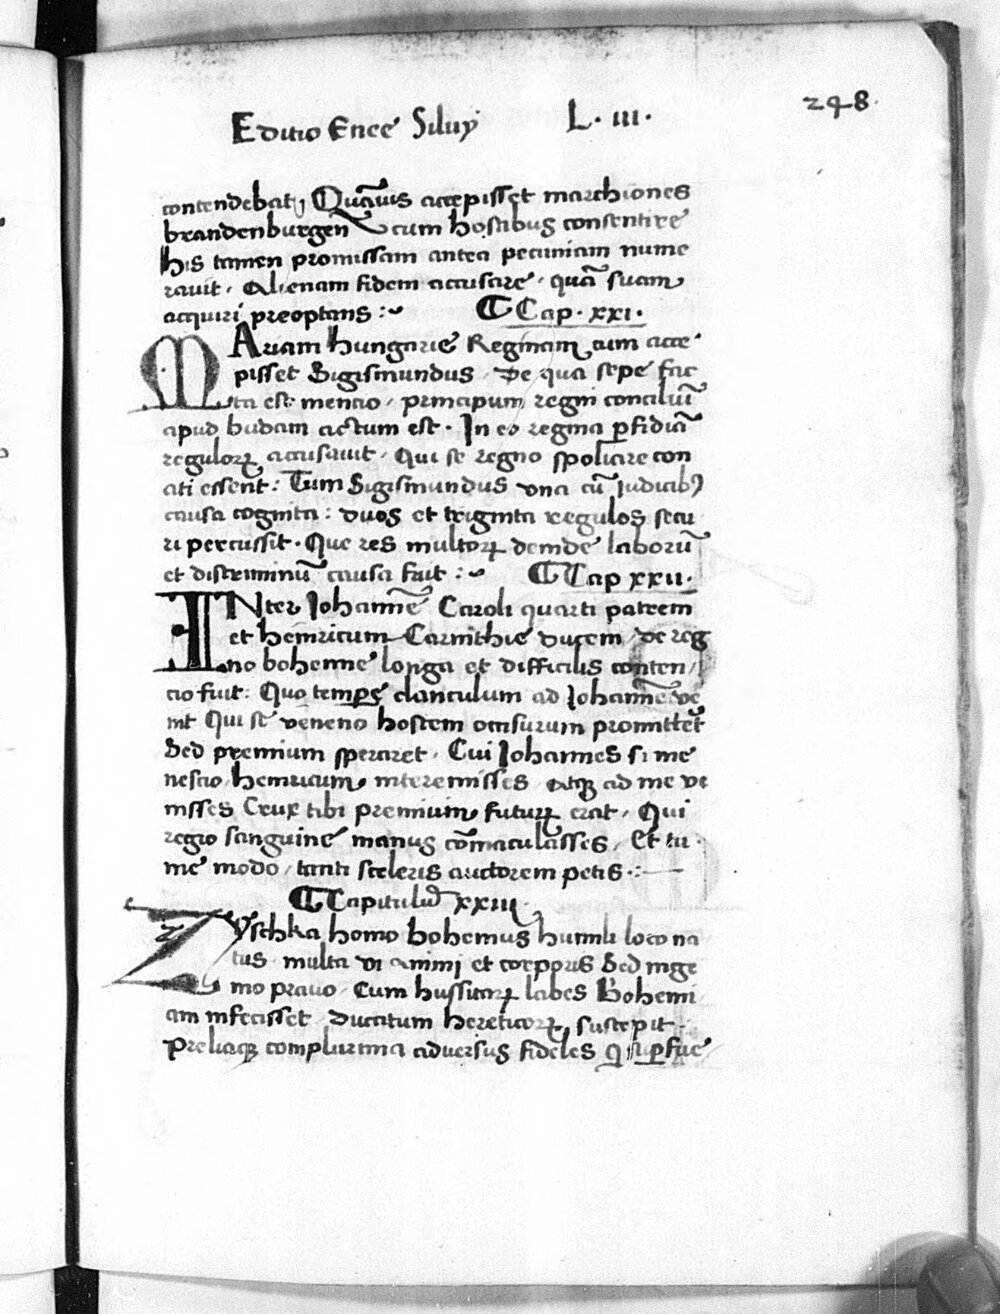 248.
Editio Enee Siluij L. III.
contendebat, Quāuis accepisset marchiones
brandenburgen cum hostibus consentire
his tamen promissam antea pecuniam nume
rauit. Alienam fidem accusare, quā suam
acquiri preoptans :~ ¶ Cap. XXI.
MAriam hungarie Reginam cum acce
pisset Sigismundus, De qua sepe fac
ta est mencio, principum regni conciliuī
apud budam actum est. In eo regina ꝑfidiā
regulorꝝ accusauit, Qui se regno spoliare con
ati essent: Tum Sigismundus vna cū iudicibꝯ
causa cognita: duos et triginta regulos secu
ri percussit. Que res multorꝝ deinde laborū
et discriminū causa fuit :~ ¶ Cap XXII.
INter Johannē Caroli quarti patrem
et heinricum Carinthie ducem, de reg
no bohemie longa et difficilis conten,
cio fuit: Quo tempꝰ clanculum ad Johannē ve
nit Qui se veneno hostem occisurum promitteret
Sed premium speraret. Cui Johannes si me
nescio heinricum interemisses, atqꝫ ad me ve
nisses Crux tibi premium futurꝝ erat, Qui
regio sanguine manus cōmaculasses, Et tu
me modo, tanti sceleris auctorem petis :—
¶ Capitulū XXIII
ZYschka homo bohemus humili loco na
tus, multa vi animi et corporis Sed inge
nio prauo, Cum hussitarꝝ labes Bohemi
am infecisset, Ducatum hereticorꝝ suscepit
Preliaqꝫ complurima aduersus fideles